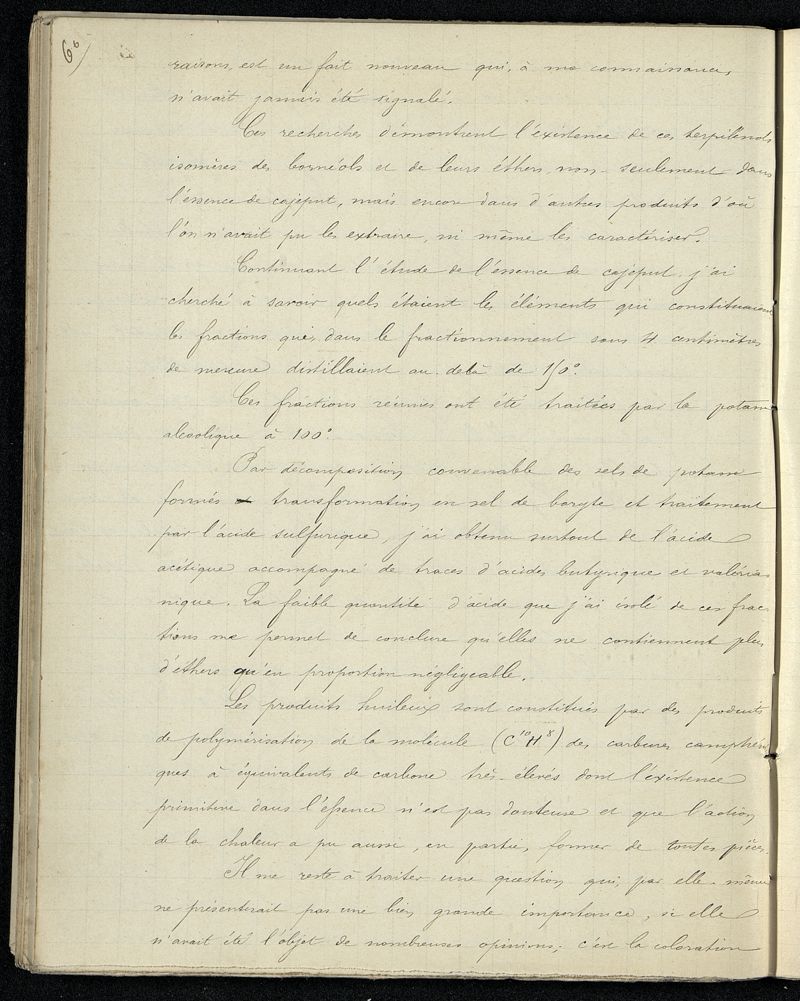 6b)
raisons, est un fait nouveau qui, à ma connaissance,
n'avait jamais été signalé.
Ces recherches démontrent l'éxistence de ces terpilénols
isomères des bornéols et de leurs éthers, non-seulement dans
l'éssence de cajeput, mais encore dans d'autres produits d'où
l'ôn n'avait pu les extraire, ni même les caractériser.
Continuant l'étude de l'éssence de cajéput j'ai
cherché à savoir quels étaient les éléments qui constituaient
les fractions qui, dans le fractionnement sous 4 centimètres
de mercure distillaient au delà de 150°.
Ces fractions réunies ont été traitées par la potasse
alcoolique à 100°.
Par décomposition convenable des sels de potasse
formés transformation en sel de baryte et traitement
par l'acide sulfurique, j'ai obtenu surtout de l'acide
acétique accompagné de traces d'acides butyrique et valéria-
nique. La faible quantité d'acide que j'ai isolé de ces frac-
tions me permet de conclure qu'elles ne contiennent plus
d'éthers qu'en proportion négligeable.
Les produits huileux sont constitués par des produits
de polymérisation de la molécule (C¹⁰H⁸) des carbures camphéni-
ques à équivalents de carbone très-élevés dont l'éxistence
primitive dans l'essence n'est pas douteuse et que l'action
de la chaleur a pu aussi, en partie, former de toutes pièces.
Il me reste à traiter une question qui, par elle-même
ne présenterait pas une bien grande importance, si elle
n'avait été l'objet de nombreuses opinions; c'est la coloration